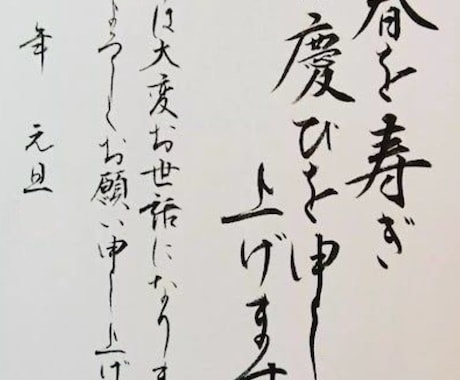 春を寿ぎ
慶びを申し
上げます
は大変お世話になりま
よろしくお願い申し上げ
年 元旦